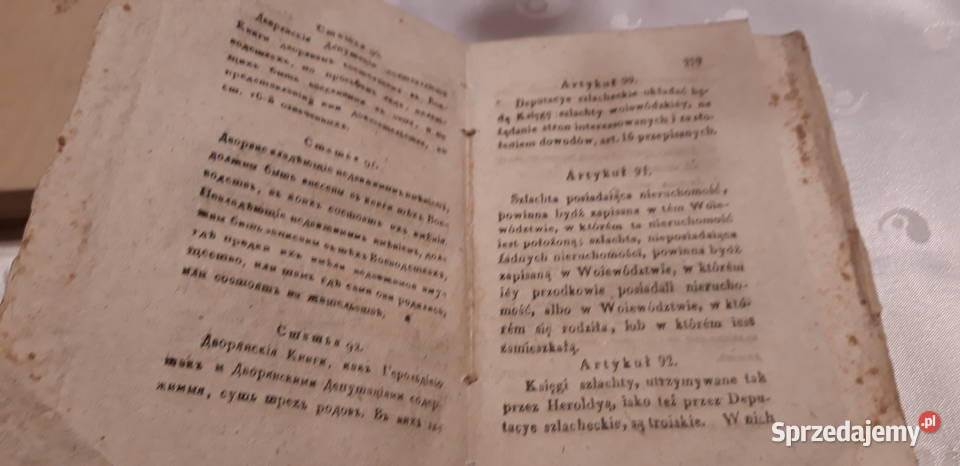 Статья 90.
Дворянскія Депутаціи
Книги дворянъ
Статья 91.
Дворяне владѣющіе недвижимымъ имѣніемъ,
должны быть внесены въ книги тѣхъ Вое-
водствъ, въ коихъ состоятъ ихъ имѣнія.
Невладѣющіе недвижимымъ имѣніемъ, долж-
ны быть записаны въ тѣхъ Воеводствахъ,
гдѣ предки ихъ имѣли недвижимое иму-
щество, или тамъ гдѣ сами они родились,
или состоятъ на жительствѣ.
Статья 92.
Дворянскія Книги, какъ Герольдіею
такъ и Дворянскими Депутаціями содер-
жимыя, суть трехъ родовъ. Въ нихъ
Artykuł 90.
Deputacye szlacheckie układać bę-
dą Księgę szlachty woiewódzkiéy, na
żądanie stron interessowanych i za zło-
żeniem dowodów, art. 16 przepisanych.
Artykuł 91.
Szlachta posiadaiąca nieruchomość,
powinna bydź zapisana w tém Woie-
wództwie, w którém ta nieruchomość
iest położoną; szlachta, nieposiadaiąca
żadnych nieruchomości, powinna bydź
zapisaną w Woiewództwie, w którém
iéy przodkowie posiadali nierucho-
mość, albo w Woiewództwie, w któ-
rém się rodziła, lub w którém iest
zamieszkałą.
Artykuł 92.
Księgi szlachty, utrzymywane tak
przez Heroldyą, iako też przez Depu-
tacye szlacheckie, są troiakie. W nich
Sprzedajemy.pl